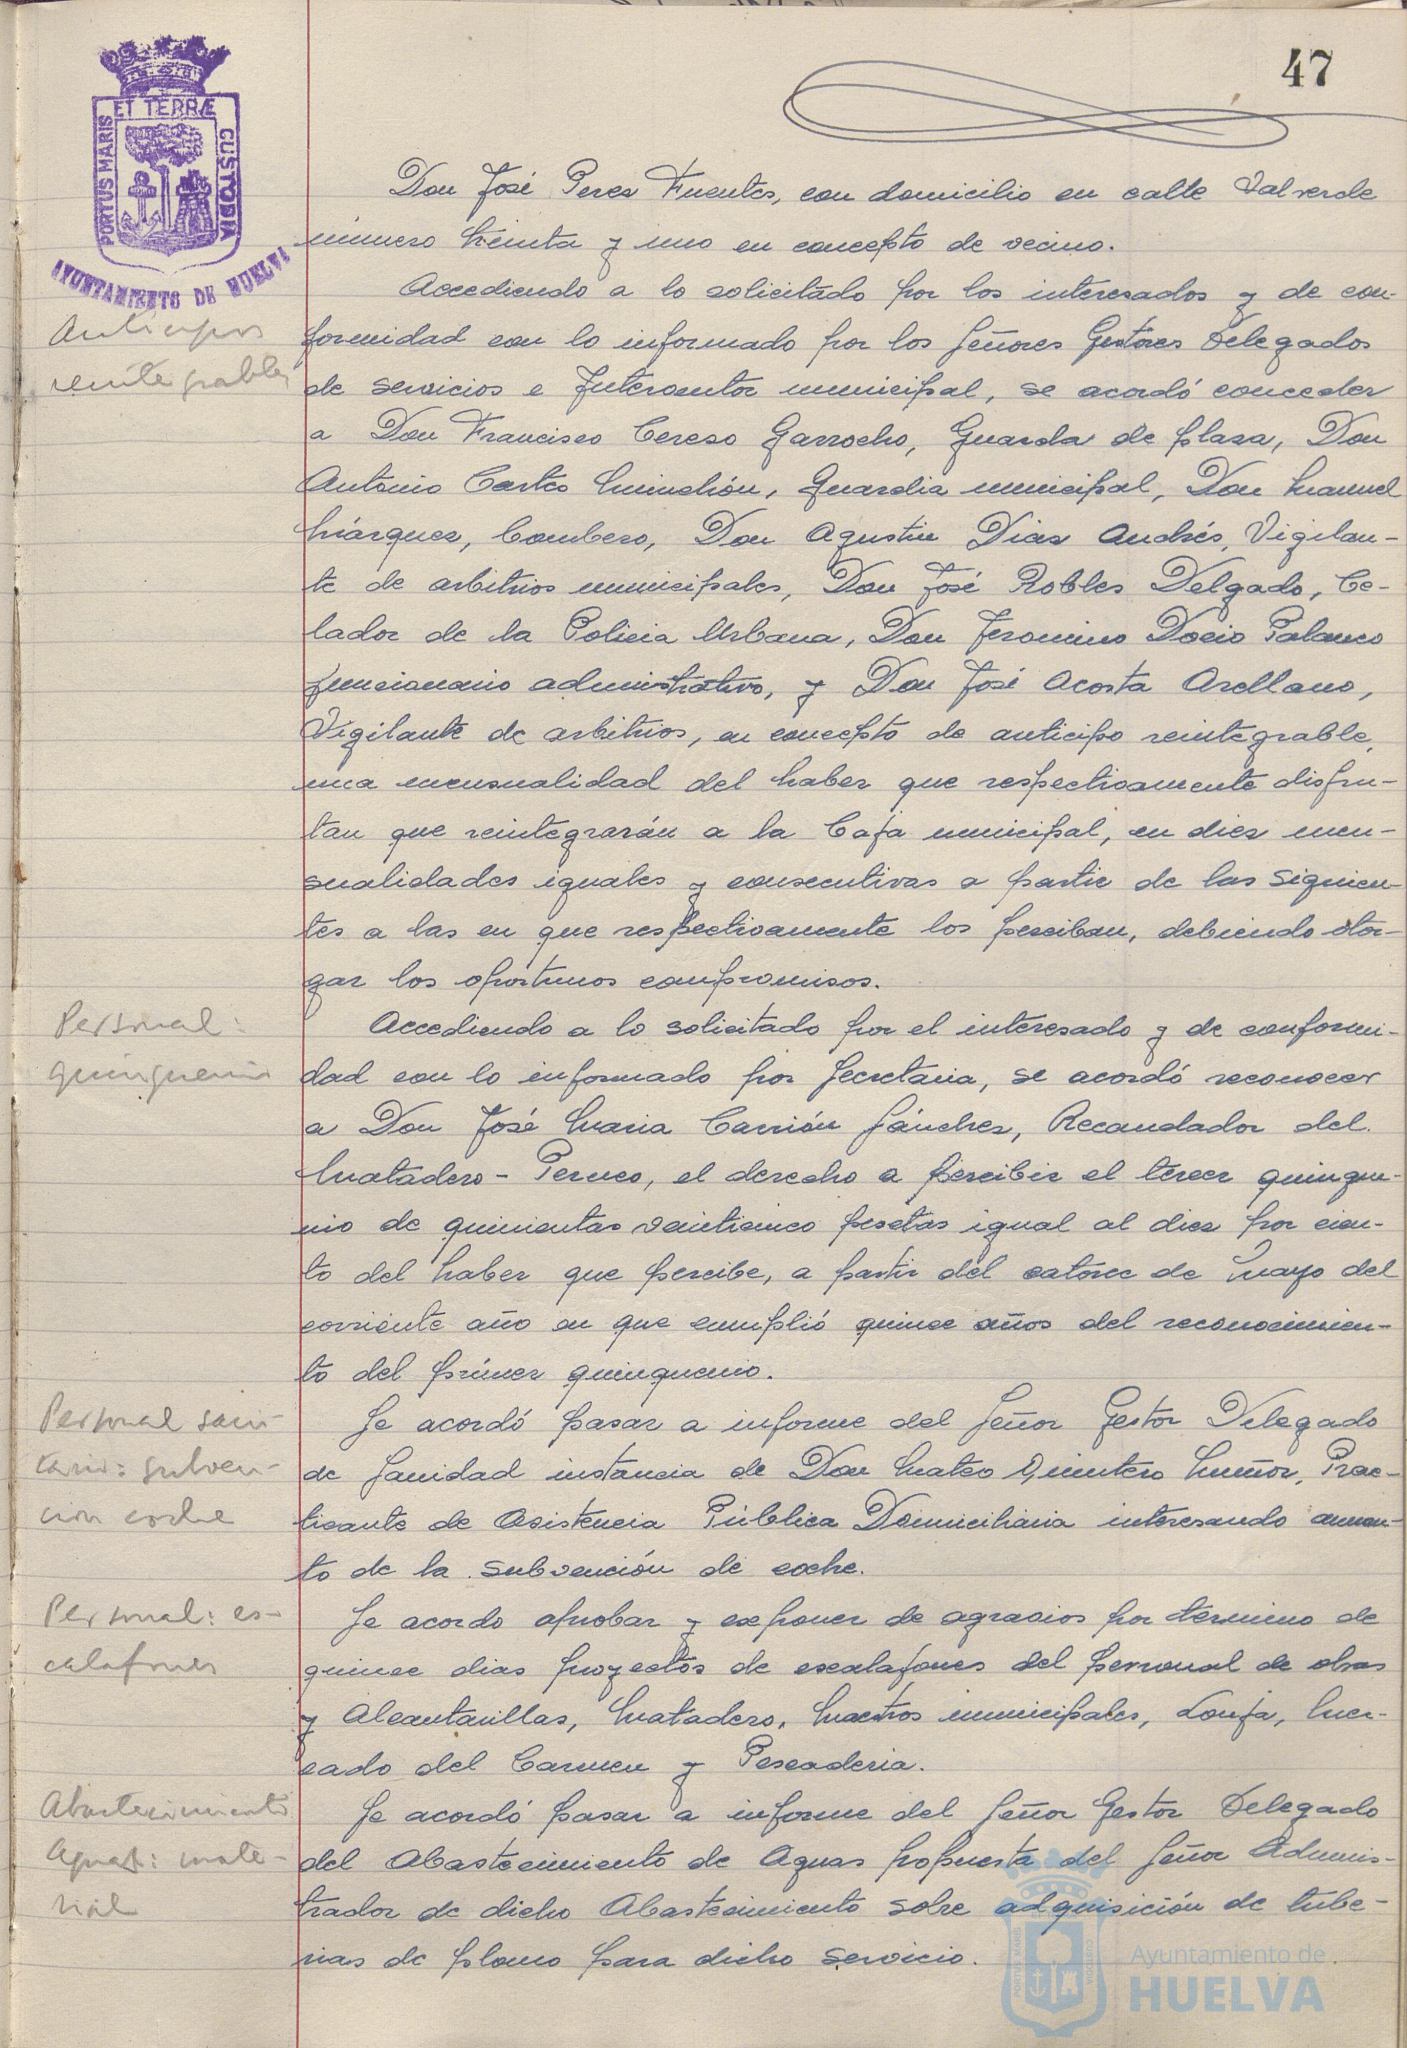 47
PORTUS MARIS ET TERRÆ CUSTODIA
AYUNTAMIENTO DE HUELVA
Don José Peres Fuentes, con domicilio en calle Valverde
número treinta y uno en concepto de vecino.
Anticipos
reintegrables
Accediendo a lo solicitado por los interesados y de con-
formidad con lo informado por los Señores Gestores Delegados
de servicios e Interventor municipal, se acordó conceder
a Don Francisco Cereso Garrocho, Guarda de plasa, Don
Antonio Castro Minchón, Guardia municipal, Don Manuel
Márques, bombero, Don Agustin Dias Andrés, Vigilan-
te de arbitrios municipales, Don José Robles Delgado, Ce-
lador de la Policia Urbana, Don Jeronimo Docio Palanco
funcionario administrativo, y Don José Acosta Arellano,
Vigilante de arbitrios, en concepto de anticipo reintegrable,
una mensualidad del haber que respectivamente disfru-
tan que reintegrarán a la Caja municipal, en dies men-
sualidades iguales y consecutivas a partir de las siguien-
tes a las en que respectivamente los perciban, debiendo otor-
gar los oportunos compromisos.
Personal:
quinquenio
Accediendo a lo solicitado por el interesado y de conformi-
dad con lo informado por Secretaria, se acordó reconocer
a Don José Maria Carrión Sánches, Recaudador del
Matadero - Peruco, el derecho a percibir el tercer quinque-
nio de quinientas veinticinco pesetas igual al dies por cien-
to del haber que percibe, a partir del catorce de Mayo del
corriente año en que cumplió quince años del reconocimien-
to del primer quinquenio.
Personal sani-
tario: subven-
ción coche
Se acordó pasar a informe del Señor Gestor Delegado
de Sanidad instancia de Don Mateo Quintero Muños, Prac-
ticante de Asistencia Pública Domiciliaria interesando aumen-
to de la subvención de coche.
Personal: es-
calafones
Se acordo aprobar y exponer de agravios por termino de
quince dias proyectos de escalafones del personal de obras
y Alcantarillas, Matadero, Maestros municipales, Lonja, Mer-
cado del Carmen y Pescaderia.
Abastecimiento
Aguas: mate-
rial
Se acordó pasar a informe del Señor Gestor Delegado
del Abastecimiento de Aguas propuesta del Señor Adminis-
trador de dicho Abastecimiento sobre adquisición de tube-
rias de plomo para dicho servicio.
Ayuntamiento de
HUELVA